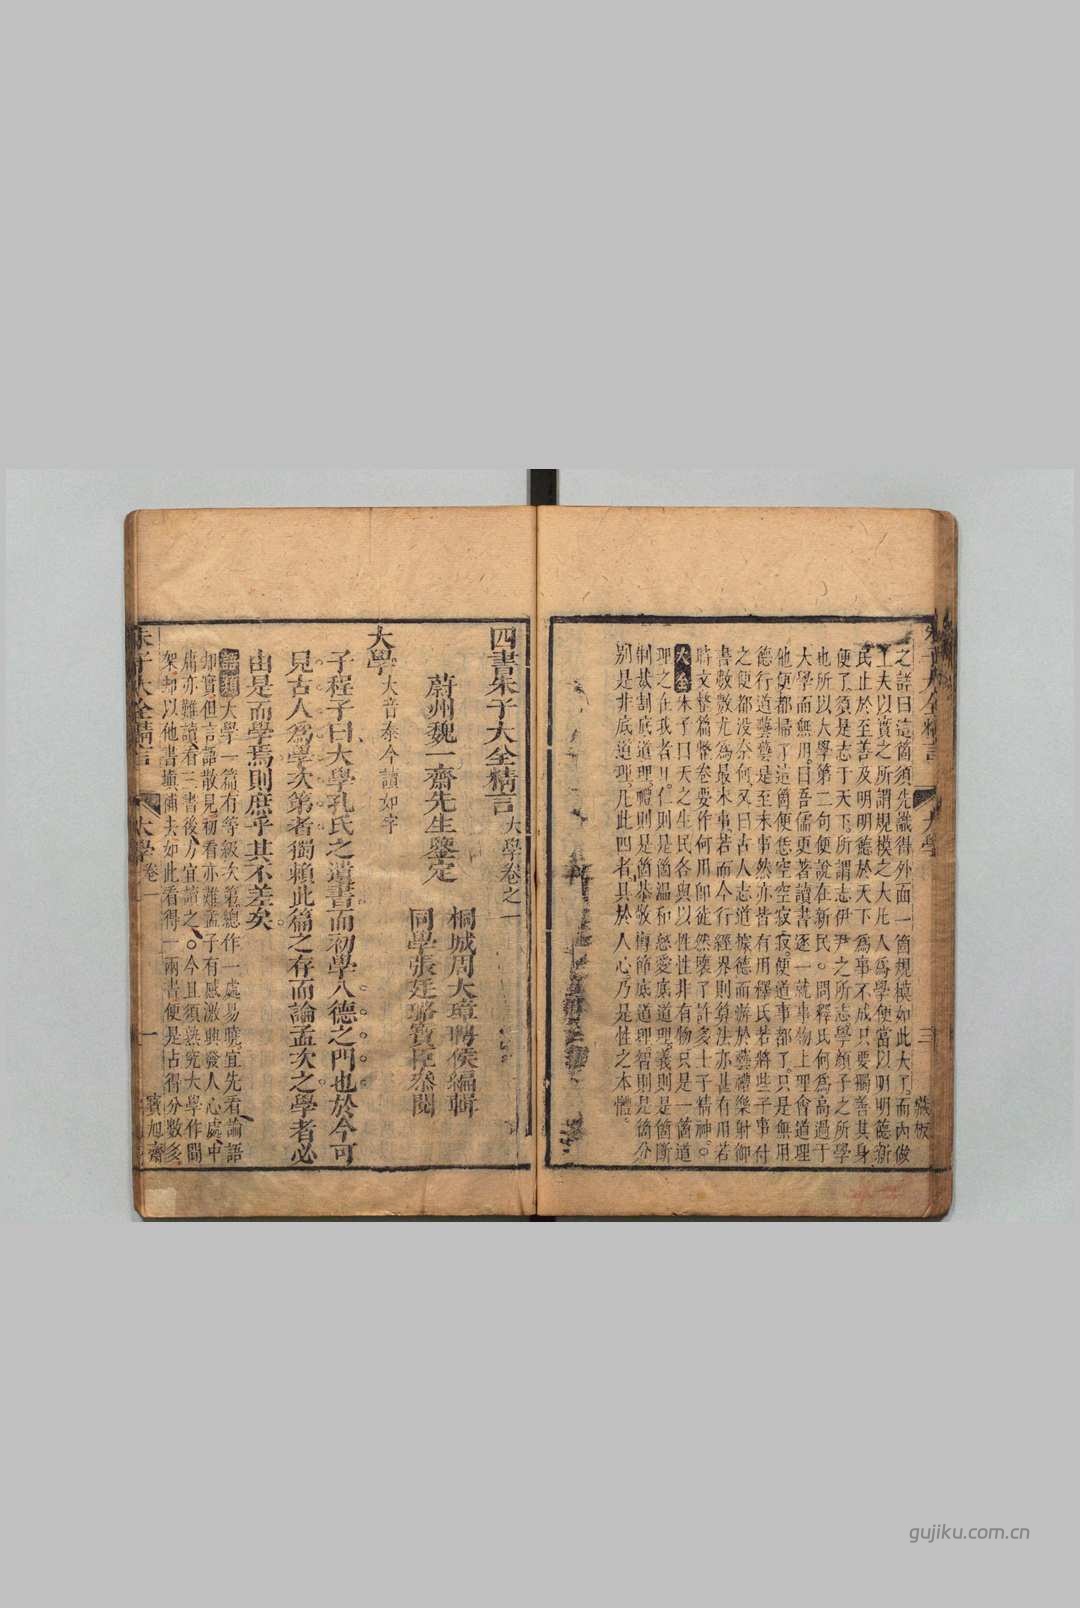 之諸曰這箇須先識得外面一箇規模如此大了而內做
工夫以實之所謂規模之大凡人為學便當以明明德新
民止於至善及明明德於天下為事不成只要獨善其身
便了須是志于天下所謂志伊尹之所志學顏子之所學
也所以大學第二句便說在新民。問釋氏何為高過于
大學而無用曰吾儒更著讀書逐一就事物上理會道理
他便都掃了這箇便恁空空寂寂便道事都了只是無用
德行道藝藝是至末事然亦皆有用釋氏若將些子事付
之便都沒奈何又曰古人志道據德而游於藝禮樂射御
書數數尤為最末事若而今行經界則算法亦甚有用若
時文整篇整卷要作何用即徒然壞了許多士子精神。
大全 朱子曰天之生民各與以性性非有物只是一箇道
理之在我者耳仁則是箇溫和慈愛底道理義則是箇斷
制裁割底道理禮則是箇恭敬撙節底道理智則是箇分
別是非底道理凡此四者具於人心乃是性之本體。
大學
三
藏板
四書朱子大全精言 大學卷之一
蔚州魏一齋先生鑒定
桐城周大璋聘侯編輯
同學張廷璐寶臣參閱
大學 大音泰今讀如字
子程子曰大學孔氏之遺書而初學入德之門也於今可
見古人為學次第者獨賴此篇之存而論孟次之學者必
由是而學焉則庶乎其不差矣
語類 大學一篇有等級次第總作一處易曉宜先看論語
却實但言語散見初看亦難孟子有感激興發人心處中
庸亦難讀看三書後方宜讀之。今且須熟究大學作間
架却以他書填補去如此看得一兩書便是占得分數多
朱子大全精言
大學卷一
一
寶旭齋
gujiku.com.cn